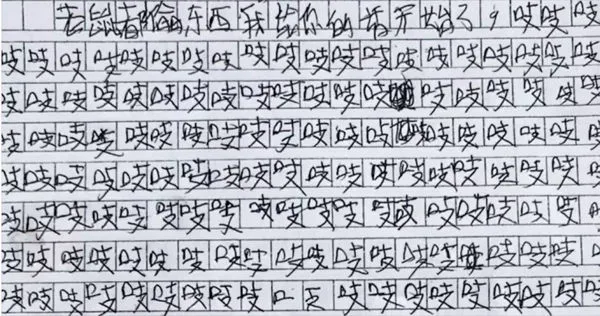 老鼠偷东西我给你的开始了，吱吱吱
吱吱吱吱吱吱吱吱吱吱吱吱吱吱吱吱吱吱吱吱
吱吱吱吱吱吱吱吱吱吱吱吱吱吱吱吱吱吱吱
吱吱吱吱吱吱吱吱吱吱吱吱吱吱吱吱吱吱吱吱
吱吱吱吱吱吱吱吱吱吱吱吱吱吱吱吱吱吱吱吱
吱吱吱吱吱吱吱吱吱吱吱吱吱吱吱吱吱吱吱吱
吱吱吱吱吱吱吱吱吱吱吱吱吱吱吱吱吱吱吱吱
吱吱吱吱吱吱吱吱吱口吱吱吱吱吱吱吱吱吱